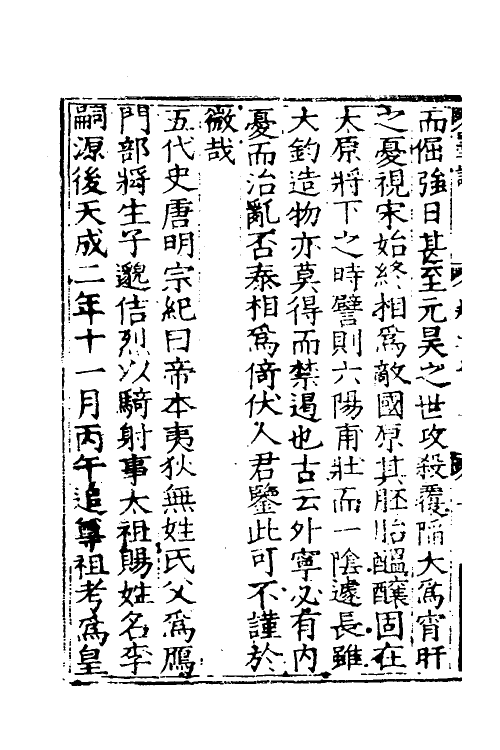 而倔強日甚至元昊之世攻殺覆陷大為宵旰
之憂視宋始終相為敵國原其胚胎醞釀固在
太原將下之時譬則六陽甫壯而一陰遽長雖
大鈞造物亦莫得而禁遏也古云外寧必有内
憂而治亂否泰相為倚伏人君鑒此可不謹於
微哉
五代史唐明宗紀曰帝本夷狄無姓氏父為鴈
門部將生子邈佶烈以騎射事太祖賜姓名李
嗣源後天成二年十一月丙午追尊祖考為皇